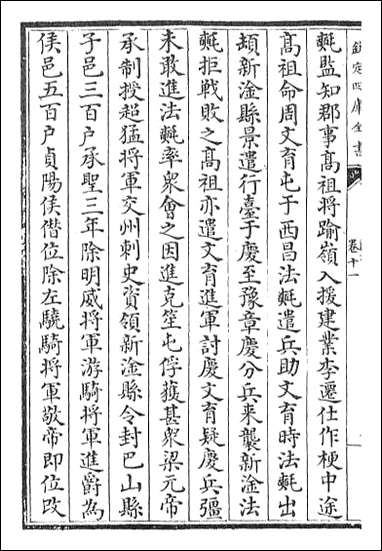 欽定四庫全書
卷十一
㲯監知郡事髙祖將踰嶺入援建業李遷仕作梗中途
髙祖命周文育屯于西昌法㲯遣兵助文育時法㲯出
頓新淦縣景遣行臺于慶至豫章慶分兵来襲新淦法
㲯拒戰敗之髙祖亦遣文育進軍討慶文育疑慶兵彊
未敢進法㲯率衆會之因進克笙屯俘獲甚衆梁元帝
承制授超猛将軍交州刺史資領新淦縣令封巴山縣
子邑三百户承聖三年除明威将軍游騎将軍進爵為
侯邑五百户貞陽侯僣位除左驍騎将軍敬帝即位改